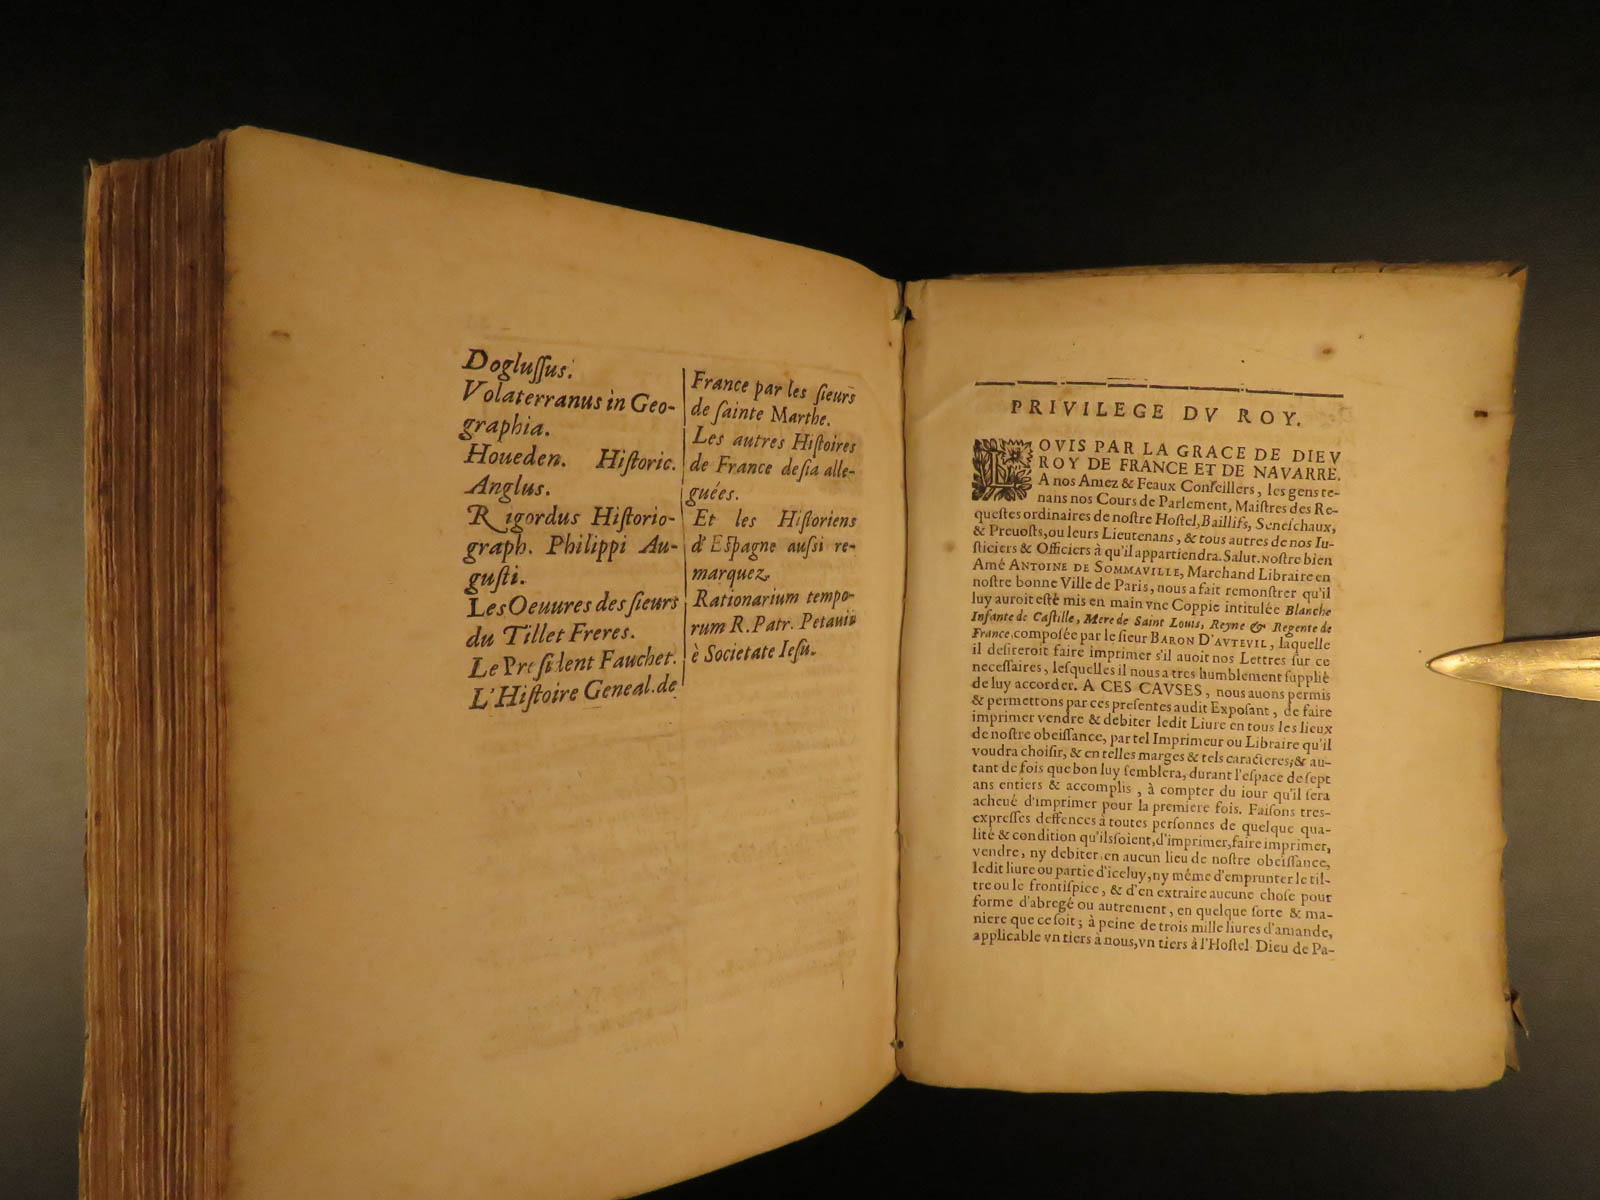 Doglussus.
Volaterranus in Geo-
graphia.
Houeden. Historic.
Anglus.
Rigordus Historio-
graph. Philippi Au-
gusti.
Les Oeuures des sieurs
du Tillet Freres.
Le President Fauchet.
L'Histoire Geneal. de
France par les sieurs
de sainte Marthe.
Les autres Histoires
de France desia alle-
guées.
Et les Historiens
d'Espagne aussi re-
marquez.
Rationarium tempo-
rum R. Patr. Petauii
è Societate Iesu.
PRIVILEGE DV ROY.
LOVIS PAR LA GRACE DE DIEV
ROY DE FRANCE ET DE NAVARRE.
A nos Amez & Feaux Conseillers, les gens te-
nans nos Cours de Parlement, Maistres des Re-
questes ordinaires de nostre Hostel, Baillifs, Seneschaux,
& Preuosts, ou leurs Lieutenans, & tous autres de nos Iu-
sticiers & Officiers à qu'il appartiendra. Salut. nostre bien
Amé ANTOINE DE SOMMAVILLE, Marchand Libraire en
nostre bonne Ville de Paris, nous a fait remonstrer qu'il
luy auroit esté mis en main vne Coppie intitulée Blanche
Infante de Castille, Mere de Saint Louis, Reyne & Regente de
France, composée par le sieur BARON D'AVTEVIL, laquelle
il desireroit faire imprimer s'il auoit nos Lettres sur ce
necessaires, lesquelles il nous a tres humblement supplié
de luy accorder. A CES CAVSES, nous auons permis
& permettons par ces presentes audit Exposant, de faire
imprimer vendre & debiter ledit Liure en tous les lieux
de nostre obeissance, par tel Imprimeur ou Libraire qu'il
voudra choisir, & en telles marges & tels caracteres; & au-
tant de fois que bon luy semblera, durant l'espace de sept
ans entiers & accomplis, à compter du iour qu'il sera
acheué d'imprimer pour la premiere fois. Faisons tres-
expresses deffences à toutes personnes de quelque qua-
lité & condition qu'ils soient, d'imprimer, faire imprimer,
vendre, ny debiter en aucun lieu de nostre obeissance,
ledit liure ou partie d'iceluy, ny méme d'emprunter le til-
tre ou le frontispice, & d'en extraire aucune chose pour
forme d'abregé ou autrement, en quelque sorte & ma-
niere que ce soit; à peine de trois mille liures d'amande,
applicable vn tiers à nous, vn tiers à l'Hostel Dieu de Pa-